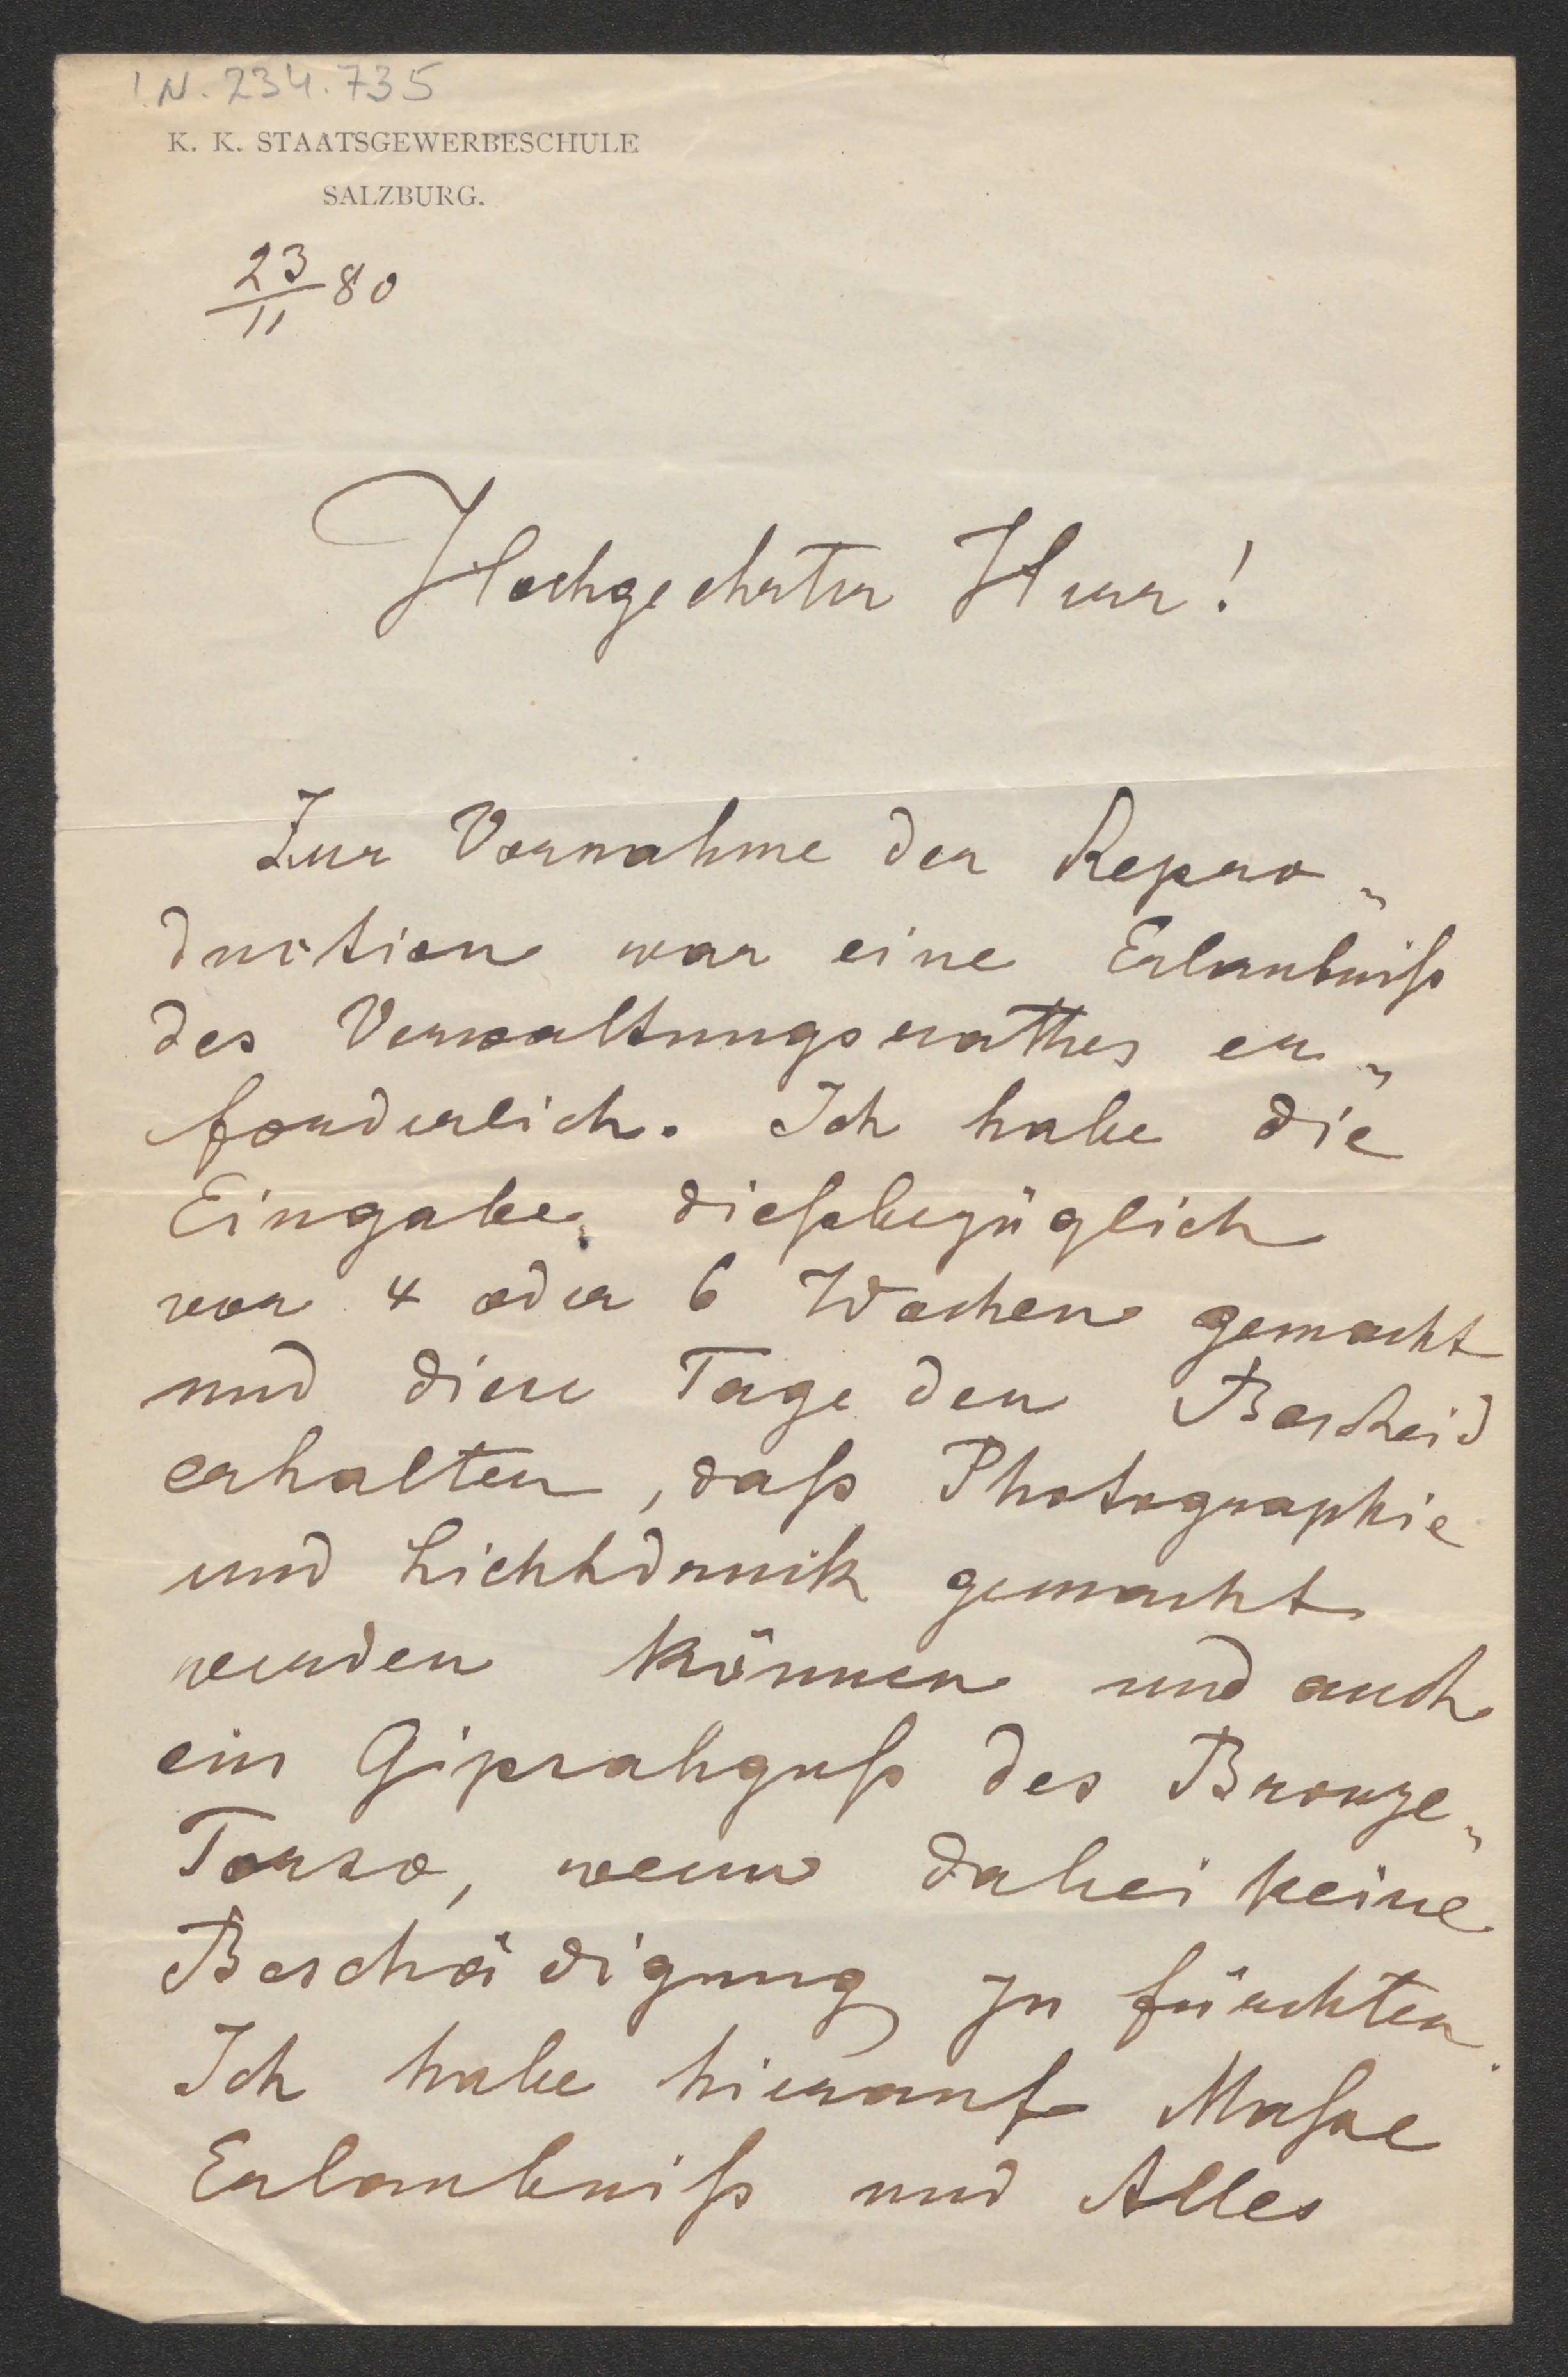 I.N. 234.735
K. K. STAATSGEWERBESCHULE
SALZBURG.
23/11 80
Hochgeehrter Herr!
Zur Vornahme der Repro„
duction war eine Erlaubniß
des Verwaltungsrathes er„
forderlich. Ich habe die
Eingabe dießbezüglich
vor 4 oder 6 Wochen gemacht
und diese Tage den Bescheid
erhalten, daß Photographie
und Lichtdruck gemacht
werden können und auch
ein Gipsabguß des Bronze„
Torso, wenn dabei keine
Beschädigung zu fürchten.
Ich habe hierauf
Erlaubniß und Alles